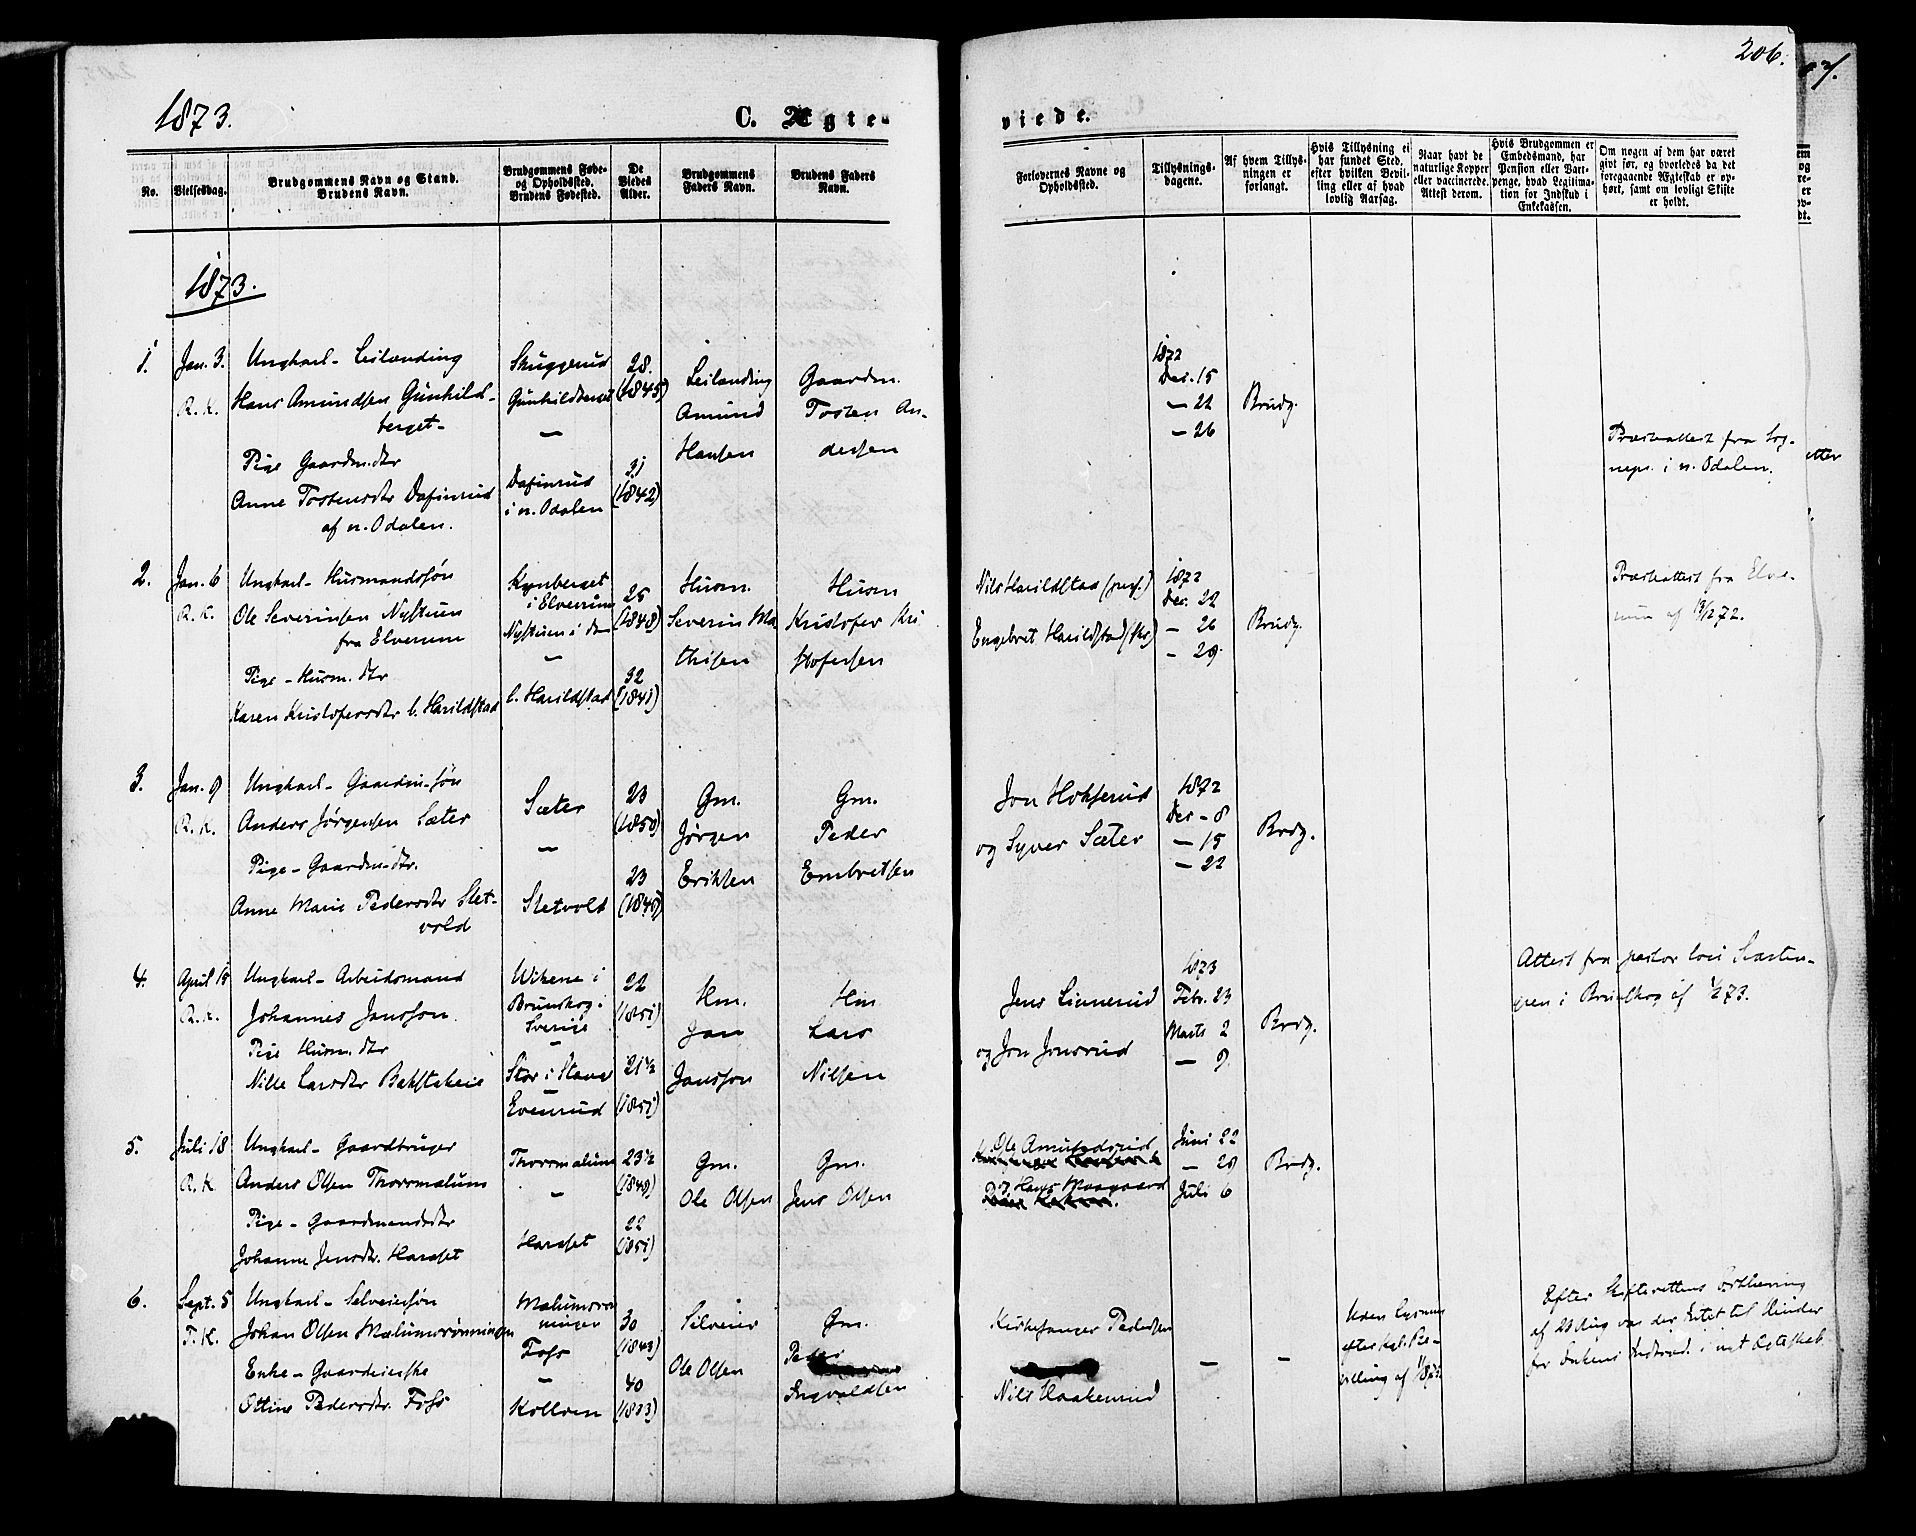 206.
1873.
C. Ægte-
viede.
No.
Vielsesdag.
Brudgommens Navn og Stand.
Brudens Navn.
Brudgommens Føde-
og Opholdssted.
Brudens Fødested.
De
Viedes
Alder.
Brudgommens
Faders Navn.
Brudens Faders
Navn.
Forlovernes Navne og
Opholdssted.
Tillysnings-
dagene.
Af hvem Tillys-
ningen er
forlangt.
Hvis Tillysning ei
har fundet Sted,
efter hvilken Bevil-
ling eller af hvad
lovlig Aarsag.
Naar havt de
naturlige Kopper
eller vaccinerede.
Attest derom.
Hvis Brudgommen er
Embedsmand, har
Pension eller Vart-
penge, hvad Legitima-
tion for Indskud i
Enkekassen.
Om nogen af dem har været
givt før, og hvorledes da det
foregaaende Ægteskab er op-
hørt, samt om lovligt Skifte
er holdt.
1873.
1.
Jan. 3.
R. K.
Ungkarl - Leilending
Hans Amundsen Gunhild-
berget-
Pige Gaardm.dtr
Anne Tostensdtr Dafinrud
af n. Odalen.
Skuggerud
Gunhildberget
—
Dafinrud
i n. Odalen
28.
(1845)
31
(1842)
Leilending
Amund
Hansen
Gaardm.
Tosten An-
dersen
1872
Dec. 15
— 22
— 26
Brudg.
Præsteattest fra Sog-
nepr. i n. Odalen.
2.
Jan. 6
R. K.
Ungkarl - Husmandssøn
Ole Severinsen Nystuen
fra Elverum
Pige - Husm. dtr
Karen Kristofersdtr l. Harildstad
Kynberget
i Elverum
Nystuen i do
—
l. Harildstad
25
(1848)
32
(1841)
Husm.
Severin Ma
thisen
Husm
Kristofer Kri
stofersen
Nils Harildstad
Engebret Harildstad
1872
Dec. 22
— 26
— 29.
Brudg.
Præsteattest fra Elve-
rum af 13/12 72.
3.
Jan. 9
R. K.
Ungkarl - Gaardm.søn
Anders Jørgensen Sæter
Pige - Gaardm.dtr.
Anne Marie Pedersdtr Slet-
vold
Sæter
—
Sletvold
23
(1850)
23
Gm.
Jørgen
Eriksen
Gm.
Peder
Embretsen
Jon Hokserud
og Syver Sæter
1872
Dec - 8
— 15
— 22
Brdg.
4.
April 15
R. K.
Ungkarl - Arbeidsmand
Johannes Jansson.
Pige Husm. dtr
Nille Larsdtr Bakstebeie
Wikene i
Brunskog i
Sverige
—
Stor i Stange
—
Evenrud
22
(1851)
21 1/2
(1851)
Hm.
Jan
Jansson
Hm.
Lars
Nilsen
Jens Linnerud
og Jon Jonsrud
1873
Febr. 23
Marts 2
— 9.
Brdg.
Attest fra pastor loci
i Brunskog af 1/2 73.
5.
Juli 18
R. K
Ungkarl - Gaardbruger
Anders Olsen Thorsmalum
Pige - Gaardmandsdtr
Johanne Jensdtr. Haraset
Thorsmalum
—
Haraset
23 1/2
(1849)
22
(1851)
Gm.
Ole Olsen
Gm.
Jens Olsen
Ole Amundsrud
og Hans
Juni 22
— 29
Juli 6
Brdg.
6.
Sept. 5
T. K.
Ungkarl - Selveiersøn
Johan Olsen Malumsrønningen
Enke - Gaardeierske
Ottine Pedersdtr. Foss
Malumsrøn
ningen
Foss
—
Kolloen
30
(1843)
40
(1833)
Selveier
Ole Olsen
Gm.
Peder
Ingvaldsen
Kirkesanger Pedersen
Nils Haakenrud
—
—
Uden Lysning
efter kgl. Be-
villing af
Efter Skifterettens Erklæring
af 29 Aug var der Intet til Hinder
for Enkens Indtræd. i nyt Ægteskab